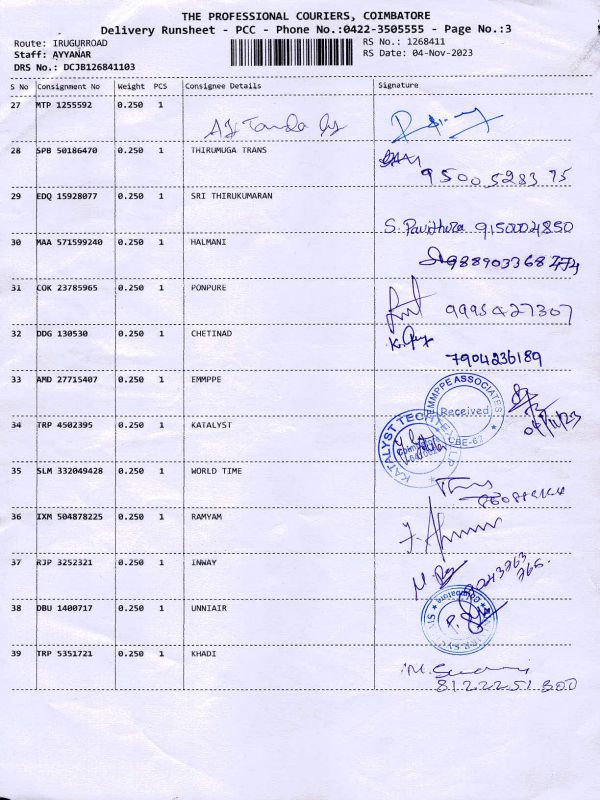 THE PROFESSIONAL COURIERS, COIMBATORE
Delivery Runsheet - PCC - Phone No.:0422-3505555 - Page No.:3
Route: IRUGURROAD
RS No.: 1268411
Staff: AYYANAR
RS Date: 04-Nov-2023
DRS No.: DCJB126841103
S No Consignment No Weight PCS Consignee Details Signature
27 MTP 1255592 0.250 1
28 SPB 50186470 0.250 1 THIRUMUGA TRANS
95005283 75
29 EDQ 15928077 0.250 1 SRI THIRUKUMARAN
S. Pavithora 9150004850
30 MAA 571599240 0.250 1 HALMANI
31 COK 23785965 0.250 1 PONPURE
9995427307
32 DDG 130530 0.250 1 CHETINAD
7904236189
33 AMD 27715407 0.250 1 EMMPPE
EMMPPE ASSOCIATES
Received
CBE-62
04/11/23
34 TRP 4502395 0.250 1 KATALYST
KATALYST TECHTEX LLP
35 SLM 332049428 0.250 1 WORLD TIME
36 IXM 504878225 0.250 1 RAMYAM
37 RJP 3252321 0.250 1 INWAY
38 DBU 1400717 0.250 1 UNNIAIR
Coimbatore
39 TRP 5351721 0.250 1 KHADI
8122251300